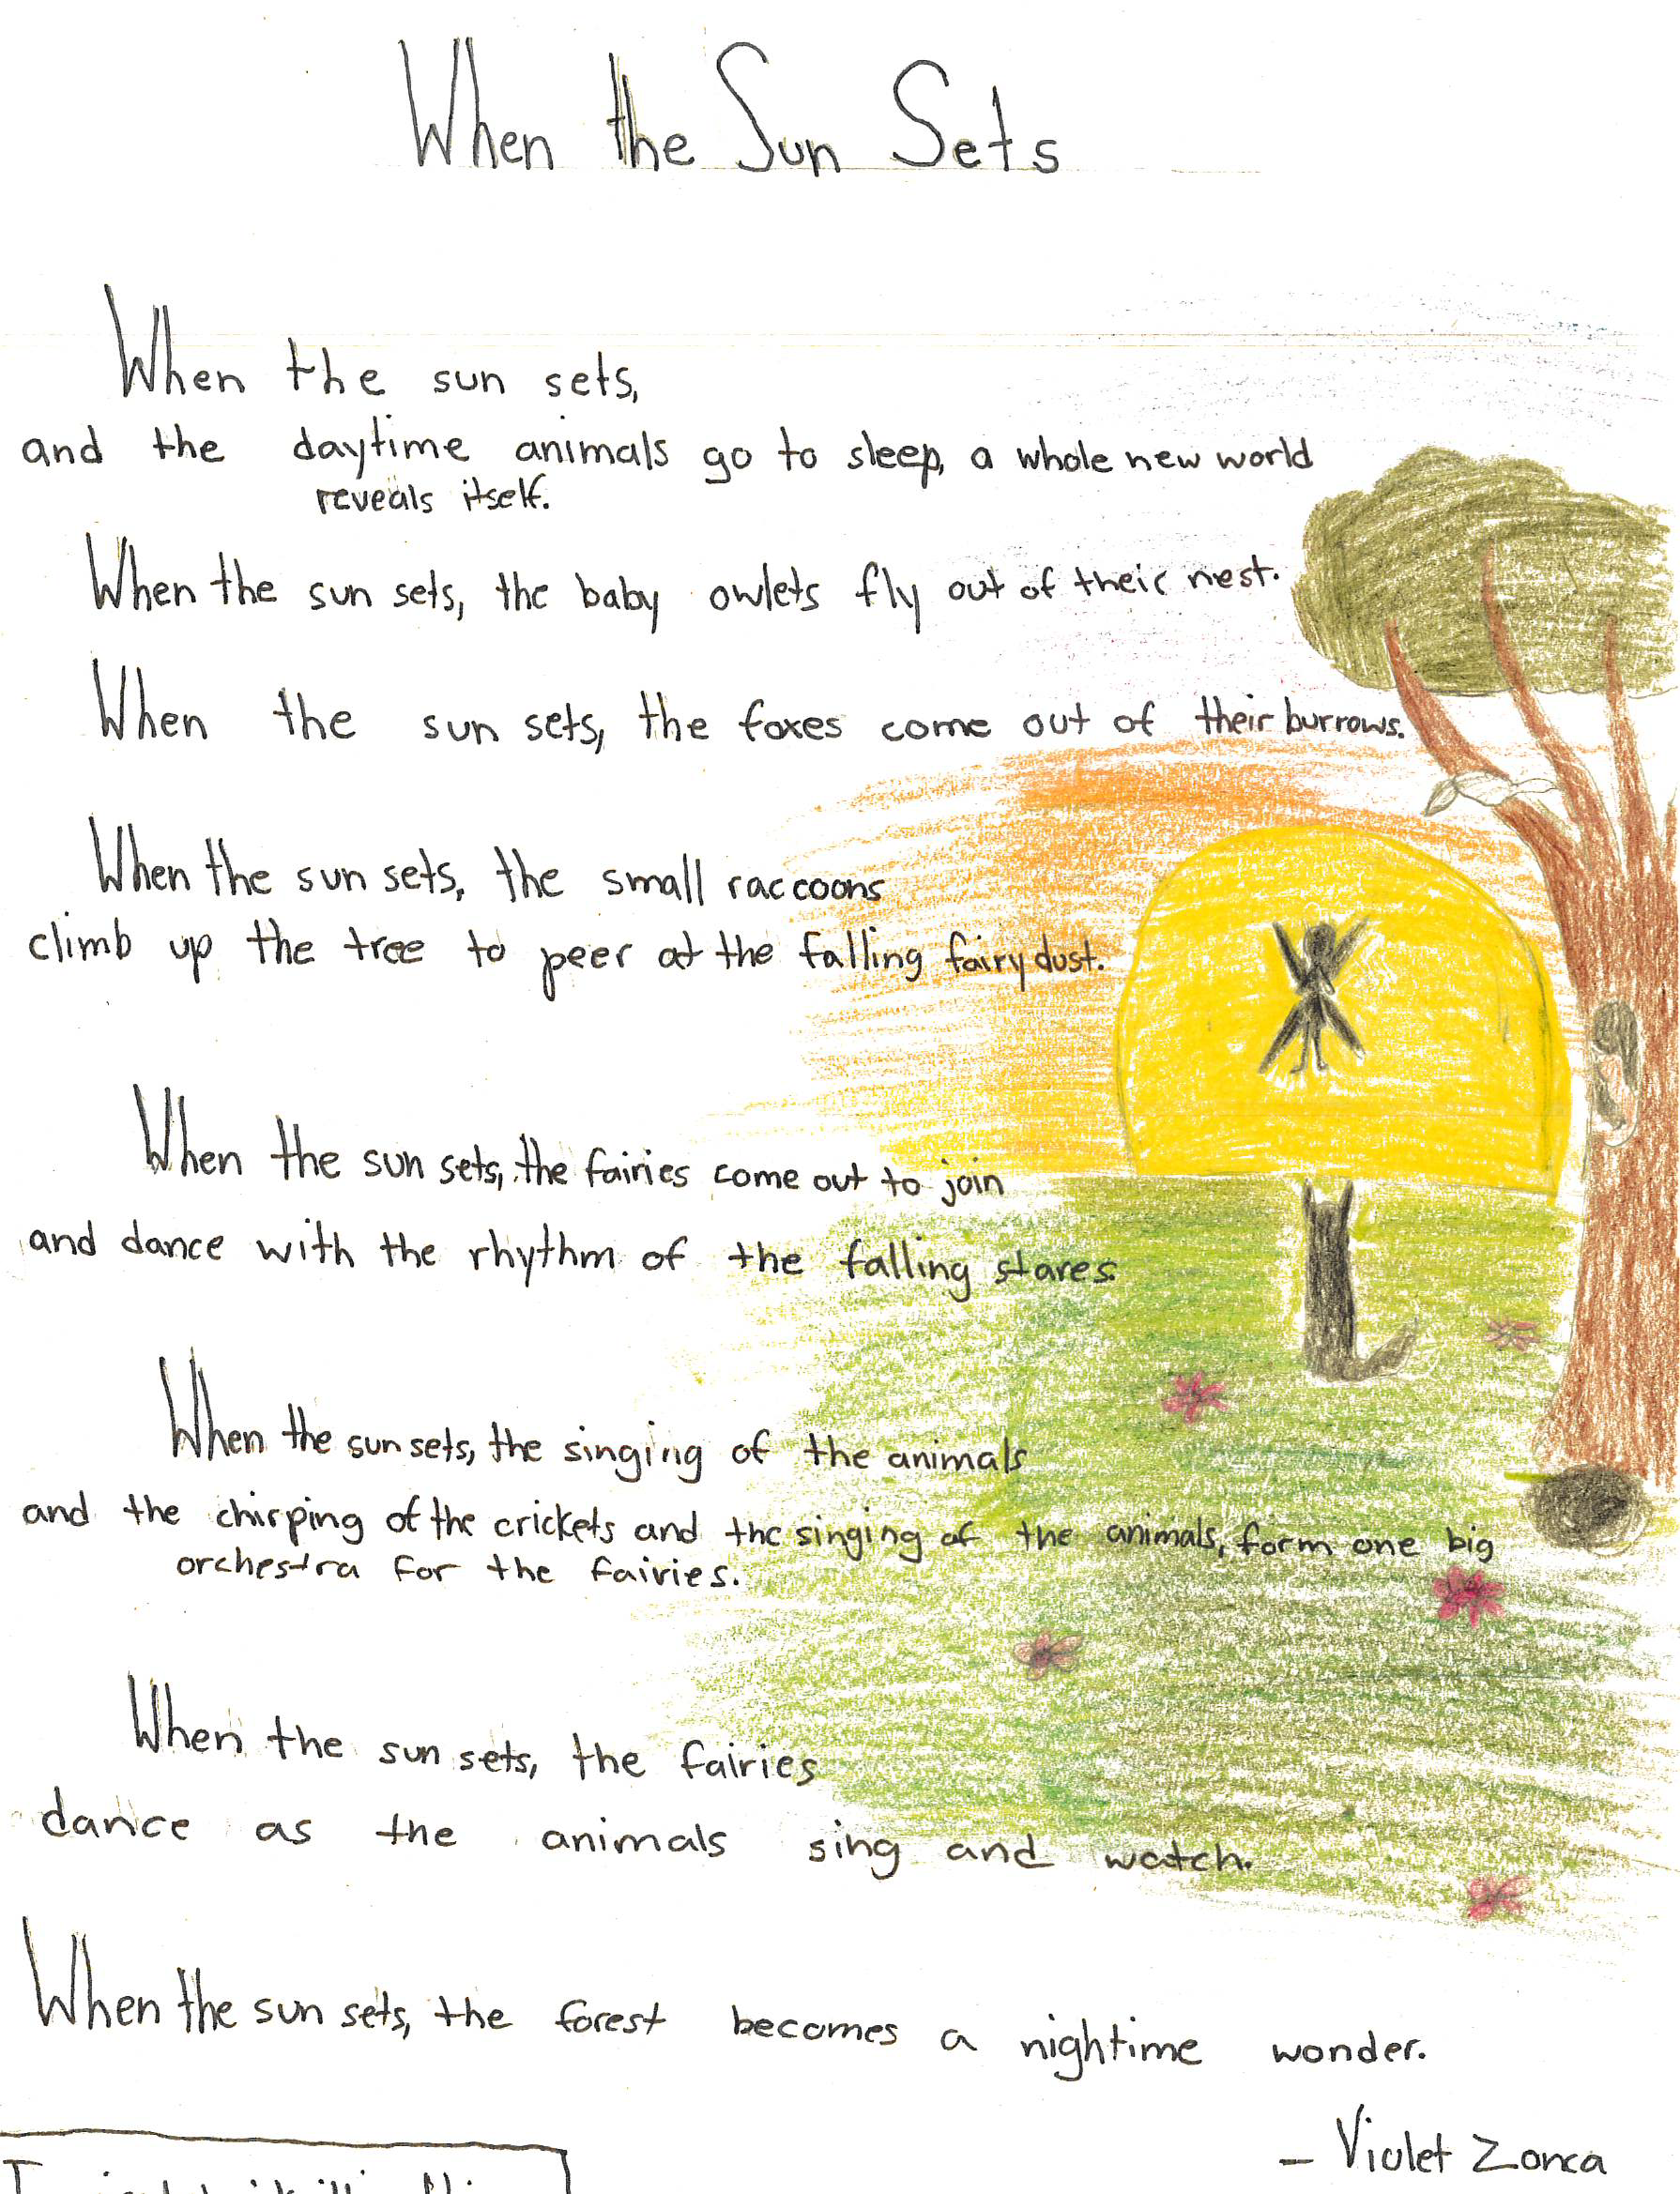 When the Sun Sets
When the sun sets,
and the daytime animals go to sleep, a whole new world
reveals itself.
When the sun sets, the baby owlets fly out of their nest.
When the sun sets, the foxes come out of their burrows.
When the sun sets, the small raccoons
climb up the tree to peer at the falling fairy dust.
When the sun sets, the fairies come out to join
and dance with the rhythm of the falling stares.
When the sun sets, the singing of the animals
and the chirping of the crickets and the singing of the animals, form one big
orchestra for the fairies.
When the sun sets, the fairies
dance as the animals sing and watch.
When the sun sets, the forest becomes a nightime wonder.
- Violet Zonca